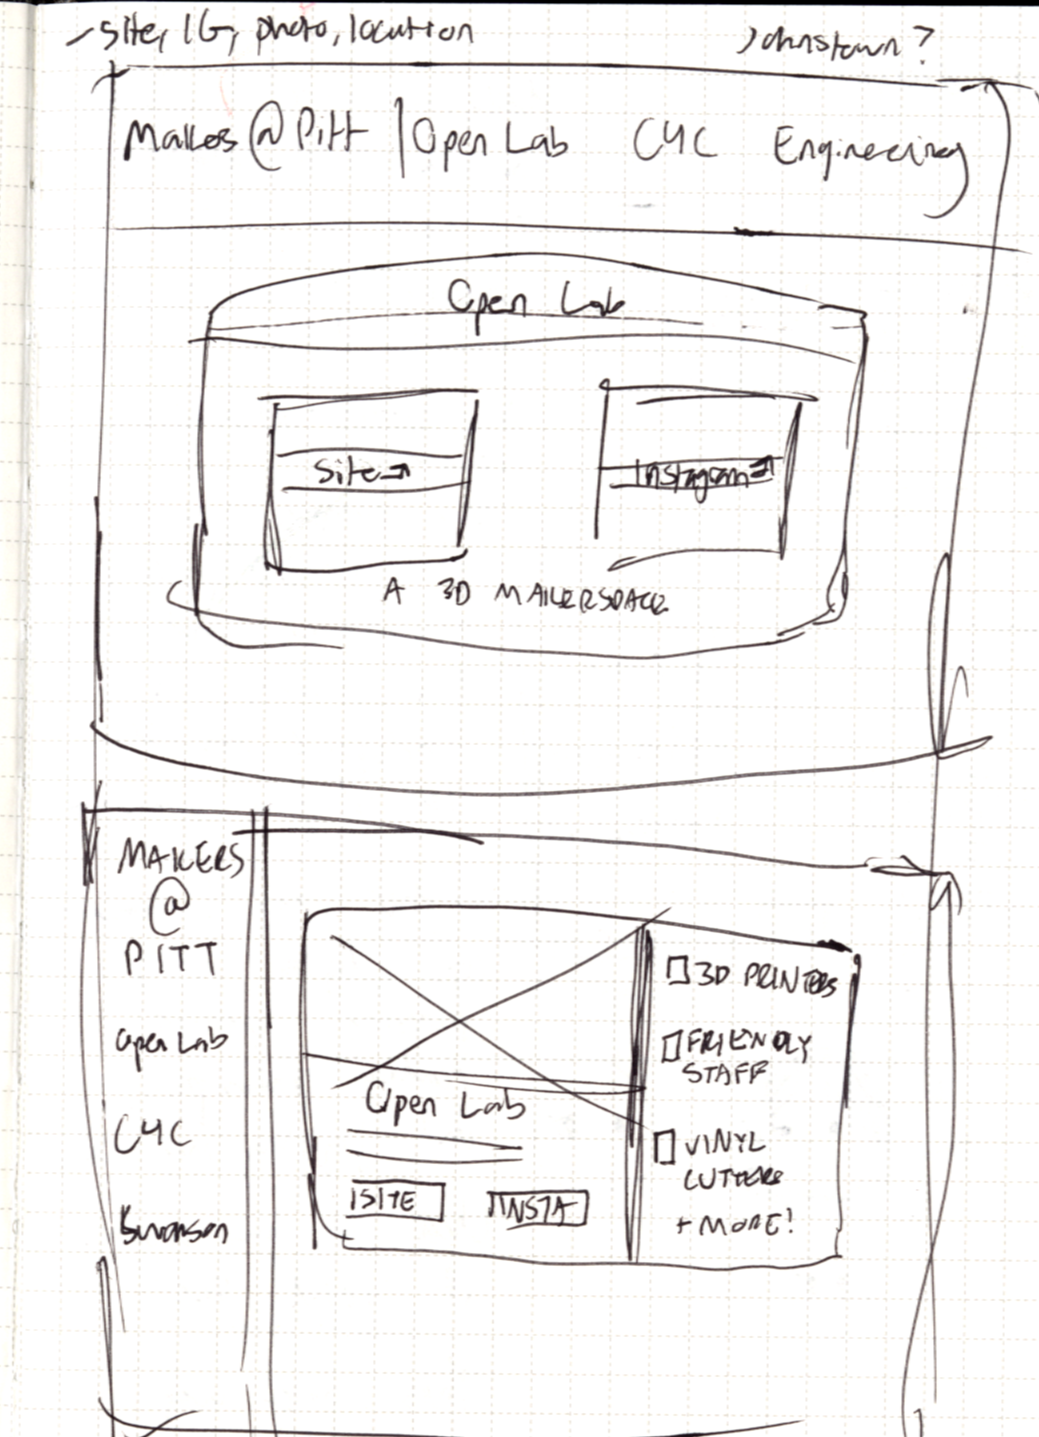 - site, IG, photo, location
Johnstown?
Makers @ Pitt | Open Lab C4C Engineering
Open Lab
Site→
Instagram→
A 3D MAKERSPACE
MAKERS
@
PITT
Open Lab
C4C
Swanson
Open Lab
SITE
INSTA
3D PRINTERS
FRIENDLY
STAFF
VINYL
CUTTERS
+ MORE!